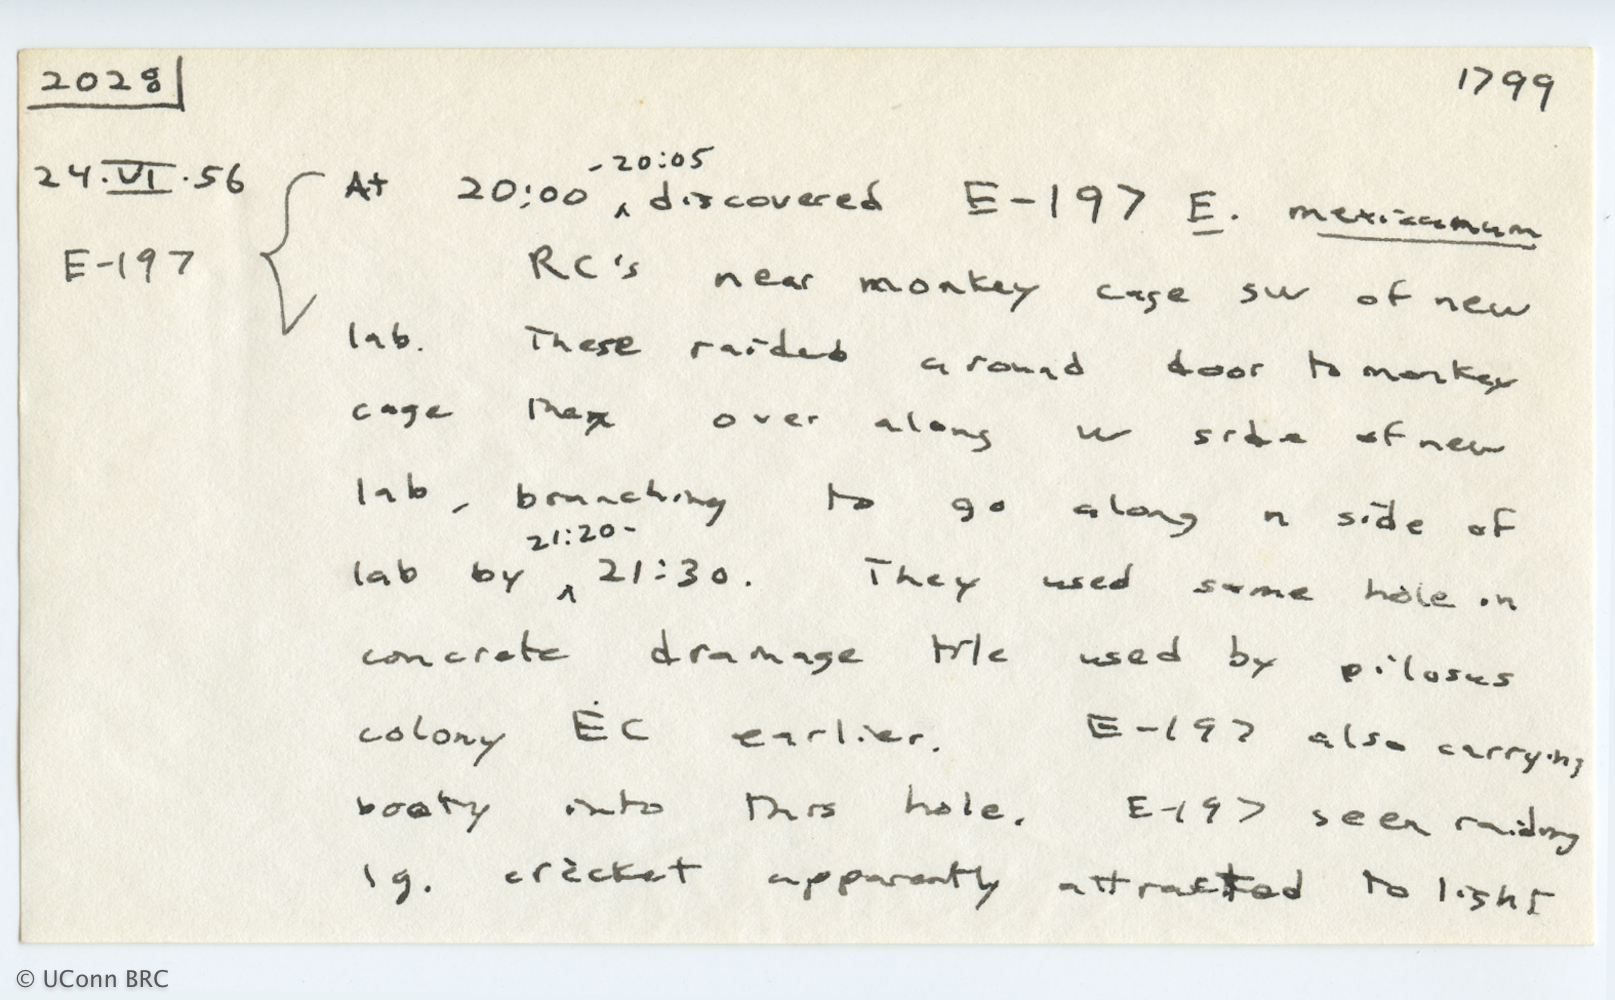 2028
1799
24.VI.56
E-197
-20:05
At 20:00 ^ discovered E-197 E. mexicanum
RC's near monkey cage SW of new
lab. These raided around door to monkey
cage then over along w side of new
lab, branching to go along n side of
21:20-
lab by ^ 21:30. They used same hole in
concrete drainage tile used by pilosus
colony EC earlier. E-197 also carrying
booty into this hole. E-197 seen raiding
lg. cricket apparently attracted to light
© UConn BRC